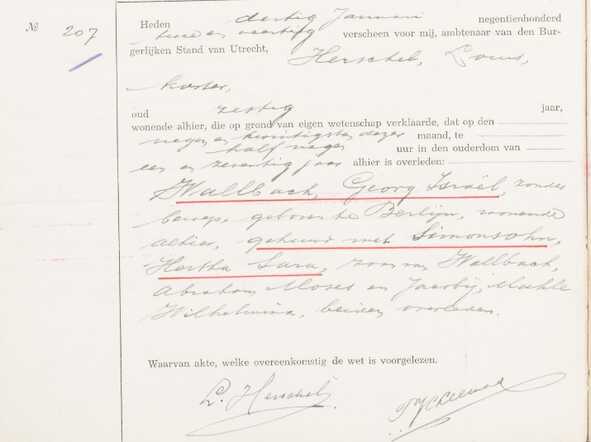 No 207
Heden dertig Januari negentienhonderd
twee en veertig verscheen voor mij, ambtenaar van den Bur-
gerlijken Stand van Utrecht, Herschel, Louis,
koster,
oud zestig jaar,
wonende alhier, die op grond van eigen wetenschap verklaarde, dat op den
negen en twintigsten dezer maand, te
half negen uur in den ouderdom van
een en zeventig jaar alhier is overleden:
Wallbach, Georg Israël, zonder
beroep, geboren te Berlijn, wonende
alhier, gehuwd met Simonsohn,
Hertha Sara, zoon van Wallbach,
Abraham Moses en
Wilhelmina, beiden overleden.
Waarvan akte, welke overeenkomstig de wet is voorgelezen.
L. Herschel